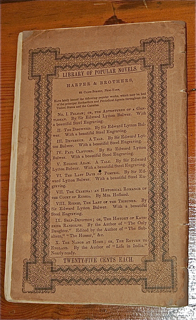 LIBRARY OF POPULAR NOVELS.
HARPER & BROTHERS,
No. I. Pelham; or, the Adventures of a Gentleman. By Sir Edward Lytton Bulwer. With
a beautiful Steel Engraving.
II. The Disowned. By Sir Edward Lytton Bulwer. With a beautiful Steel Engraving.
III. Devereux. A Tale. By Sir Edward Lytton Bulwer. With a beautiful Steel Engraving.
IV. Paul Clifford. By Sir Edward Lytton Bulwer. With a beautiful Steel Engraving.
V. Eugene Aram. A Tale. By Sir Edward Lytton Bulwer. With a beautiful Steel Engraving.
VI. The Last Days of Pompeii. By Sir Edward Lytton Bulwer. With a beautiful Steel Engraving.
VII. The Czarina; an Historical Romance of the Court of Russia. By Mrs. Hofland.
VIII. Rienzi, The Last of the Tribunes. By Sir Edward Lytton Bulwer. With a beautiful Steel Engraving.
IX. Self-Devotion; or, the History of Katherine Randolph. By the Author of
X. The Nabob at Home; or, The Return to England. By the Author of "Life in India."
TWENTY-FIVE CENTS EACH.